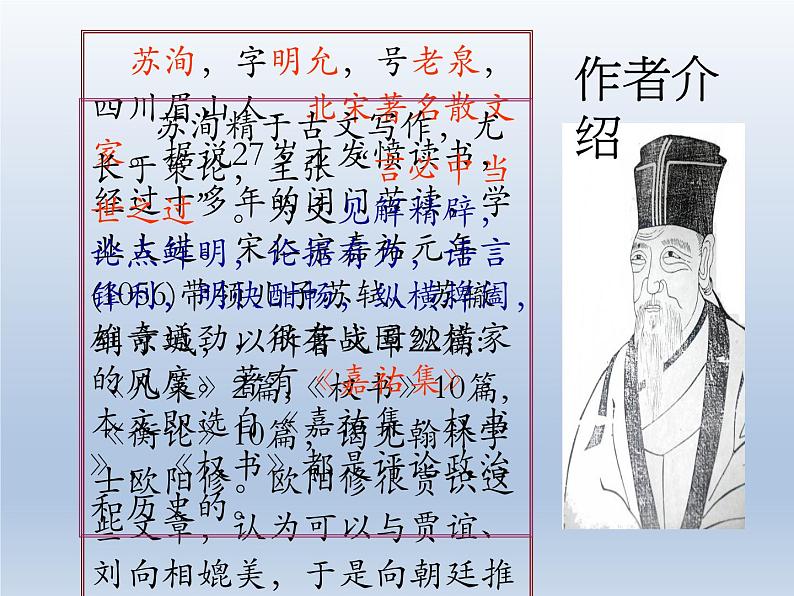 作者介
绍
苏洵，字明允，号老泉，
四川眉山人，北宋著名散文
家。据说27岁才发愤读书，
经过十多年的闭门苦读。学
业大进。宋仁宗嘉祐元年
(1056)带领儿子苏轼、苏辙
到京城，以所著文章22篇:
《几策》2篇,《权书》10篇,
《衡论》10篇，谒见翰林学
士欧阳修。欧阳修很赏识这
些文章，认为可以与贾谊、
刘向相媲美，于是向朝廷推
苏洵精于古文写作，尤
长于策论，主张“言必中当
世之过”。为文见解精辟，
论点鲜明，论据有力，语言
锋利，明快酣畅，纵横捭阖，
雄奇遒劲，很有战国纵横家
的风度。著有《嘉祐集》
本文即选自《嘉祐集 权书
》，《权书》都是评论政治
和历史的。